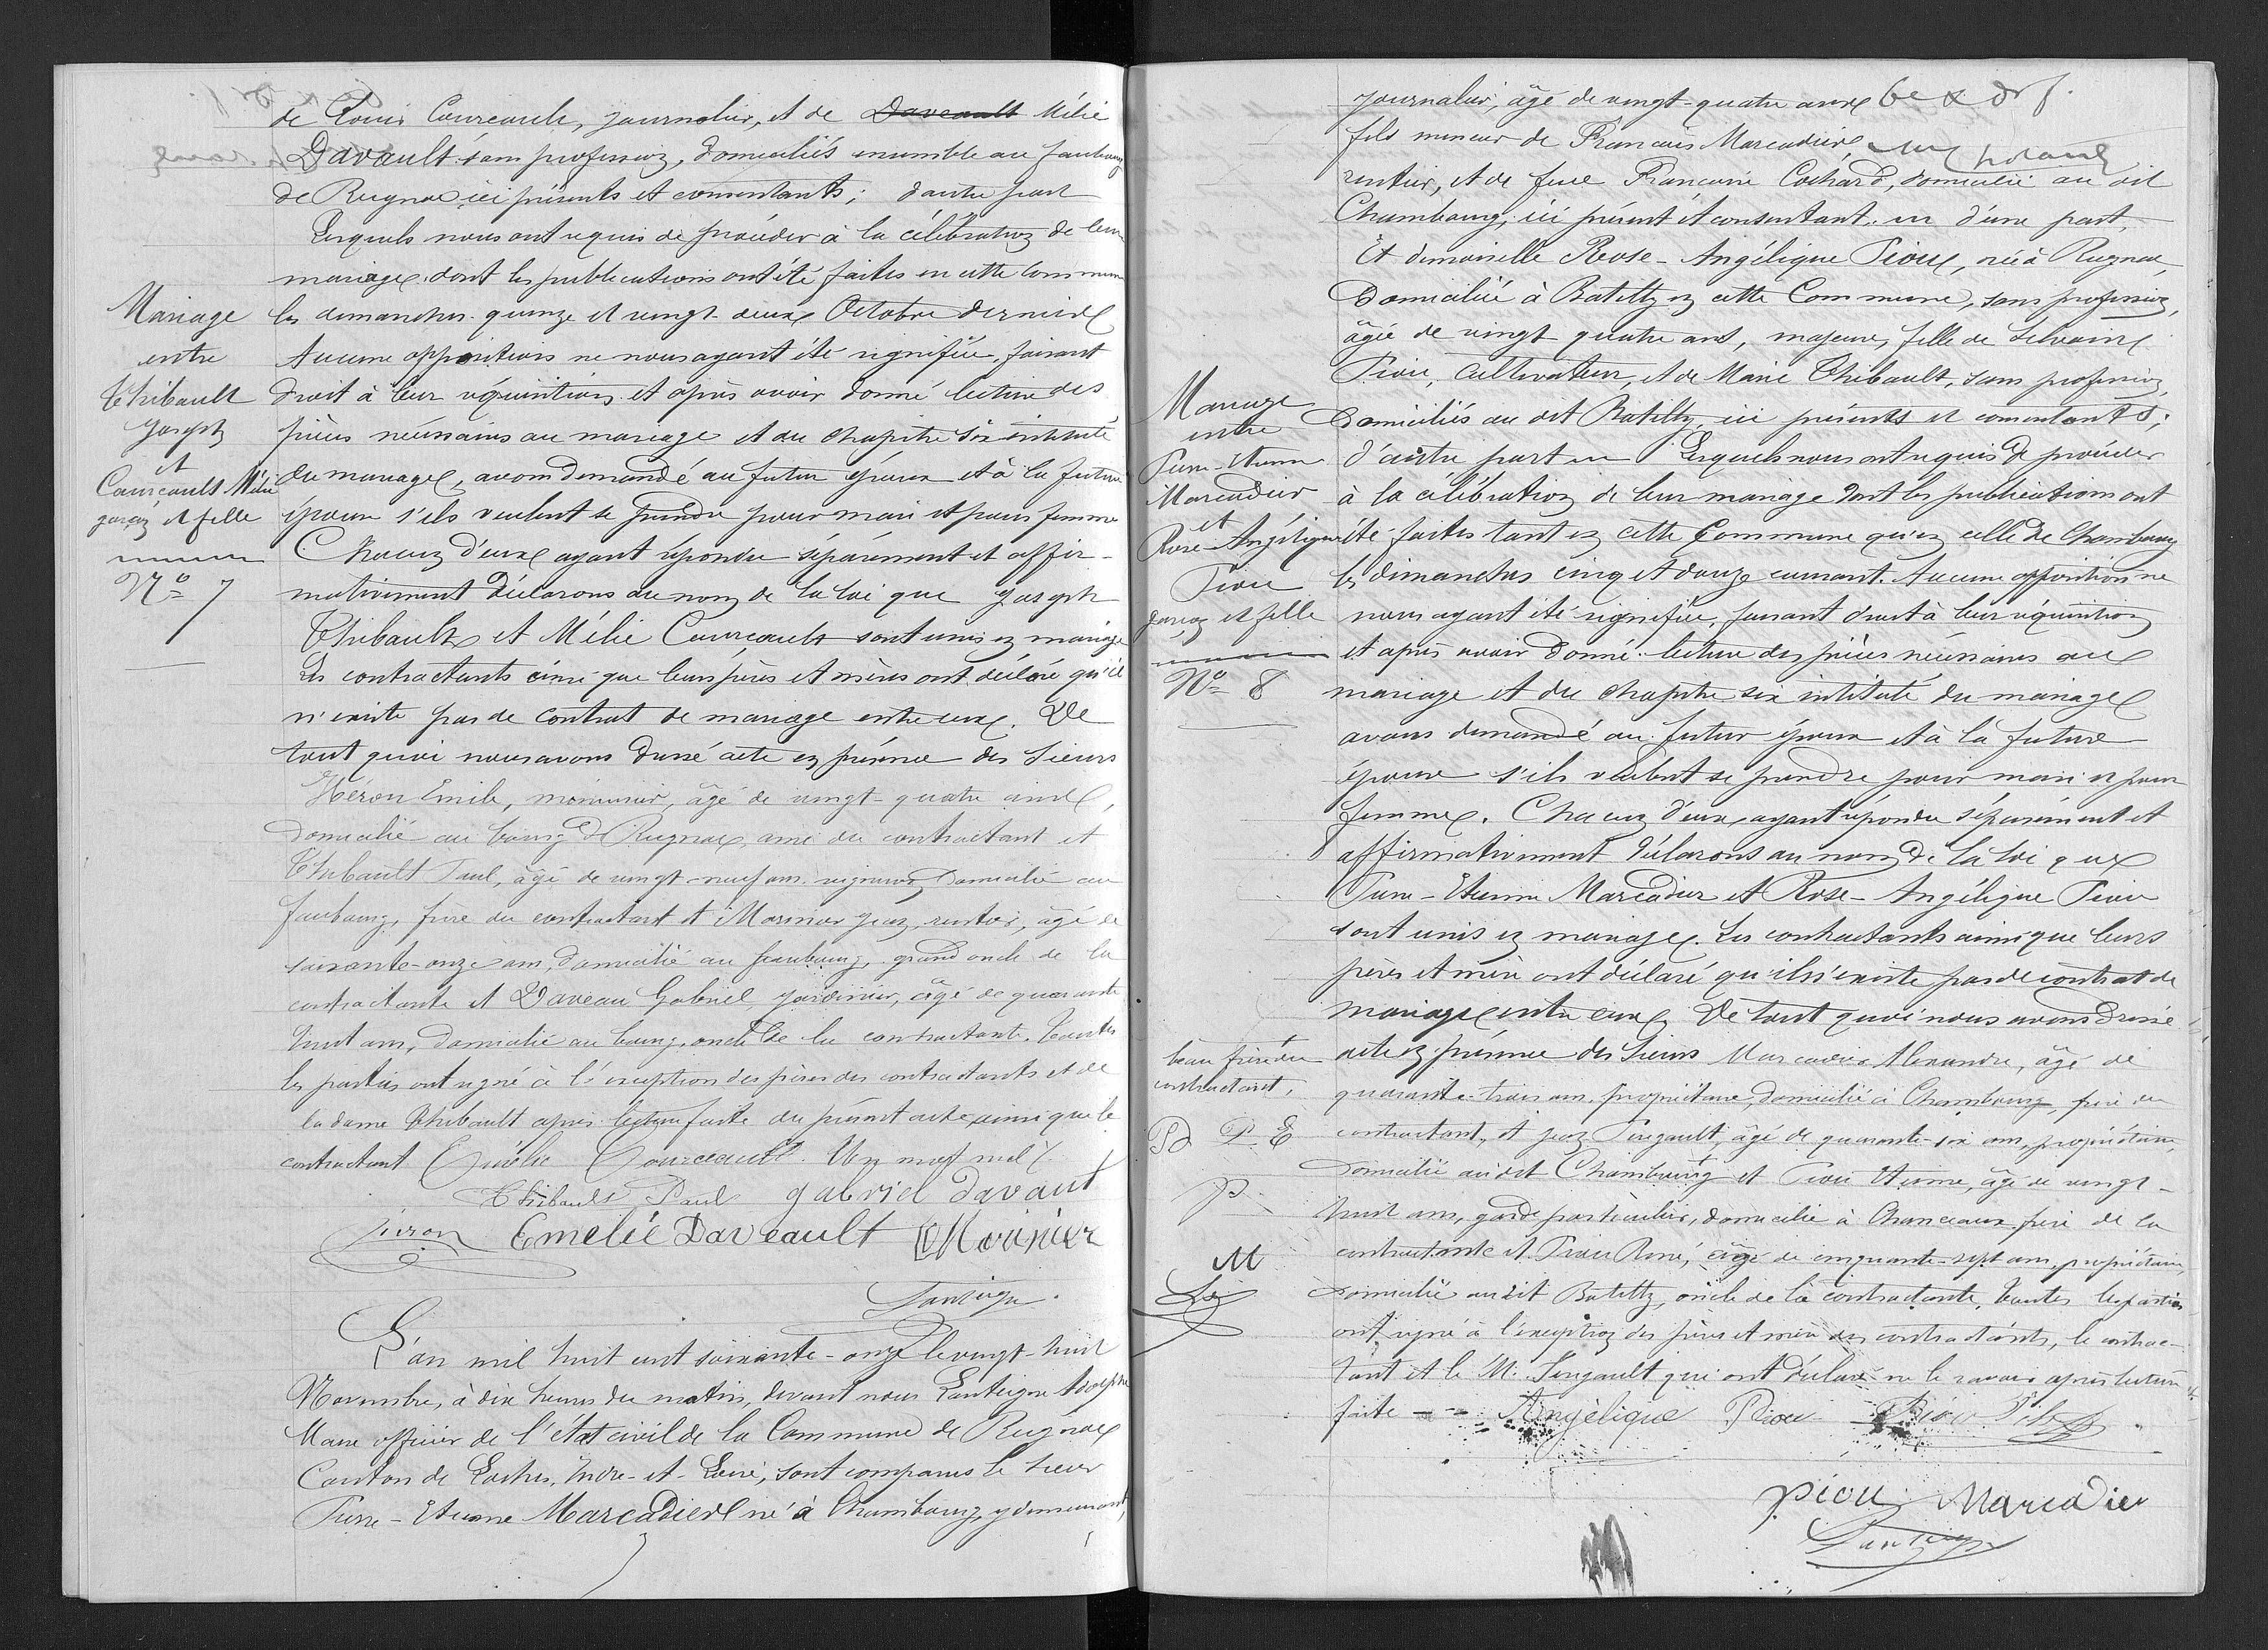 de Louis Courcault, journalier, et de Daveault Mélie
Davault sans profession, domiciliés ensemble au faubourg
de Reignac ici présents et consentants; d'autre part
Lesquels nous ont requis de procéder à la célébration de leur
mariage dont les publications ont été faites en cette Commune
les dimanches quinze et vingt-deux Octobre dernier
Aucune opposition ne nous ayant été signifiée, faisant
droit à leur réquisition et après avoir donné lecture des
pièces nécessaires au mariage et du chapitre six intitulé
du mariage, avons demandé au futur époux et à la future
épouse s'ils veulent se prendre pour mari et pour femme
Chacun d'eux ayant répondu séparément et affir-
mativement déclarons au nom de la loi que Joseph
Thibault et Mélie Courcault sont unis en mariage
Les contractants ainsi que leurs pères et mères ont déclaré qu'il
n'existe pas de contrat de mariage entre eux. De
tout quoi nous avons dressé acte en présence des sieurs
Héron Emile, menuisier, âgé de vingt-quatre ans,
domicilié au bourg de Reignac, ami du contractant et
Thibault Paul, âgé de vingt-neuf ans vigneron, domicilié au
faubourg, frère du contractant et Mornier Jean, rentier, âgé de
soixante-onze ans, domicilié au faubourg, grand oncle de la
contractante et Daveau Gabriel, jardinier, âgé de quarante
huit ans, domicilié au bourg, oncle de la contractante. Toutes
les parties ont signé à l'exception des pères des contractants et de
la dame Thibault après lecture faite du présent acte, ainsi que le
contractant Courceault
Thibault Paul gabriel davaut
Emelié Daveault Mornier
Lanteigne
Mariage
entre
Thibault
Joseph
et
Courcault Mélie
garçon et fille
N° 7
L'an mil huit cent soixante-onze le vingt-huit
Novembre, à dix heures du matin, devant nous Lanteigne Adolphe
Maire officier de l'état civil de la Commune de Reignac
Canton de Loches, Indre-et-Loire, sont comparus le sieur
Pierre-Etienne Marcadier né à Chambourg, y demeurant,
journalier, âgé de vingt-quatre ans
fils mineur de François Marcadier
rentier, et de feue Françoise Cochard, domicilié au dit
Chambourg, ici présent et consentant d'une part,
Et demoiselle Rose-Angélique Piou, née à Reignac,
Domiciliée à Batilly en cette Commune, sans profession,
âgée de vingt quatre ans, majeure, fille de Silvain
Piou, Cultivateur, et de Marie Thibault, sans profession,
Domiciliés au dit Batilly, ici présents et consentants;
d'autre part Lesquels nous ont requis de procéder
à la célébration de leur mariage dont les publications ont
été faites tant en cette Commune qu'en celle de Chambourg
les dimanches cinq et douze courant. Aucune opposition ne
nous ayant été signifiée, faisant droit à leur réquisition
et après avoir donné lecture des pièces nécessaires au
mariage et du chapitre six intitulé du mariage
avons demandé au futur époux et à la future
épouse s'ils veulent se prendre pour mari et pour
femme. Chacun d'eux ayant répondu séparément et
affirmativement déclarons au nom de la loi que
Pierre-Etienne Marcadier et Rose-Angélique Piou
sont unis en mariage. Les contractants ainsi que leurs
pères et mère ont déclaré qu'il n'existe pas de contrat de
mariage entre eux. De tout quoi nous avons dressé
acte en présence des sieurs Marcadier Alexandre, âgé de
quarante-trois ans, propriétaire, domicilié à Chambourg, frère du
contractant, et Jean Pingault, âgé de quarante-six ans, propriétaire,
domicilié audit Chambourg et Piou Etienne, âgé de vingt-
huit ans, garde particulier, domicilié à Chanceaux frère de la
contractante et Piou René, âgé de cinquante-sept ans, propriétaire,
domicilié audit Batilly, oncle de la contractante, Toutes les parties
ont signé à l'exception des pères et mère des contractants, le contrac-
tant et le Mr. Pingault qui ont déclaré ne le savoir après lecture
faite Angélique Piou
piou Marcadier
Lanteigne
Mariage
entre
Pierre-Etienne
Marcadier
et
Rose-Angélique
Piou
garçon et fille
N° 8
beau frère du
contractant,
P E
P
M